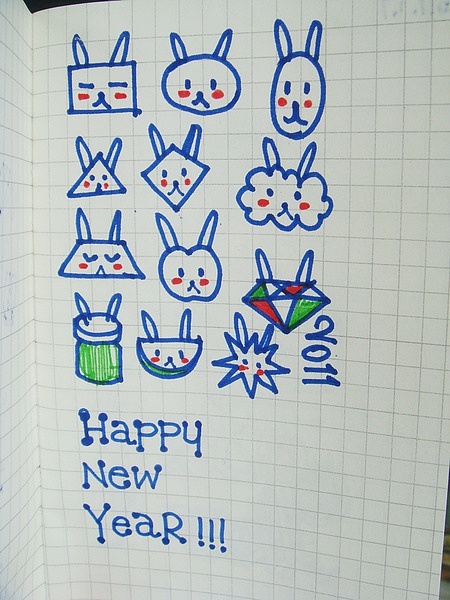 2011
Happy
New
YeaR !!!